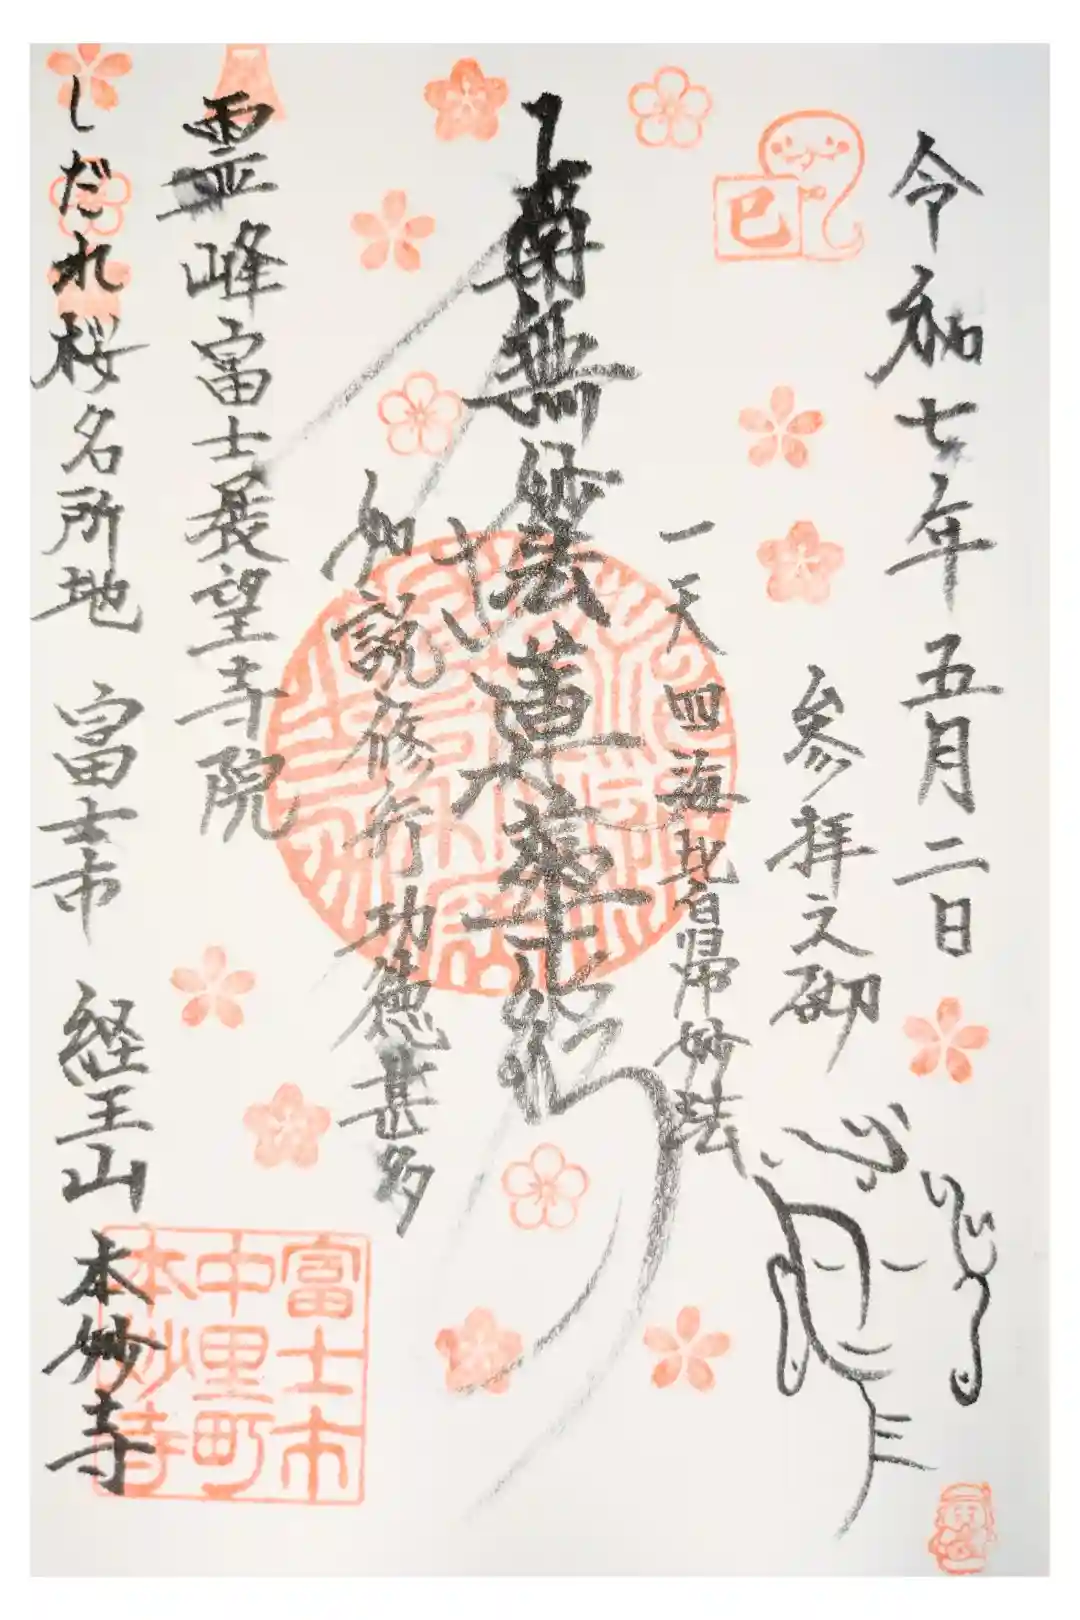 令和七年五月二日
参拝之砌
巳
一天四海皆帰妙法
南無妙法蓮華経
如説修行功徳甚多
霊峰富士展望寺院
しだれ桜名所地 富士市 経王山 本妙寺
富士市
中里町
本妙寺